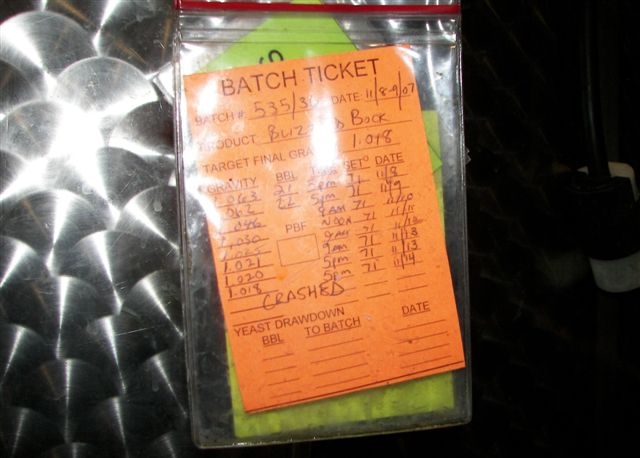 BATCH TICKET
BATCH # 535/36 DATE: 11/8-9/07
PRODUCT BLIZZARD BOCK
TARGET FINAL GRA 1.018
GRAVITY BBL SET° DATE
1.063 21 5pm 71 11/8
21 5pm 71 11/9
1.046 9AM 71 11/10
PBF
1.030 NOON 71 11/11
9AM 71 11/12
1.021 9AM 71 11/13
1.020 5pm 71 11/13
1.018 5pm 71 11/14
CRASHED
YEAST DRAWDOWN
BBL TO BATCH DATE